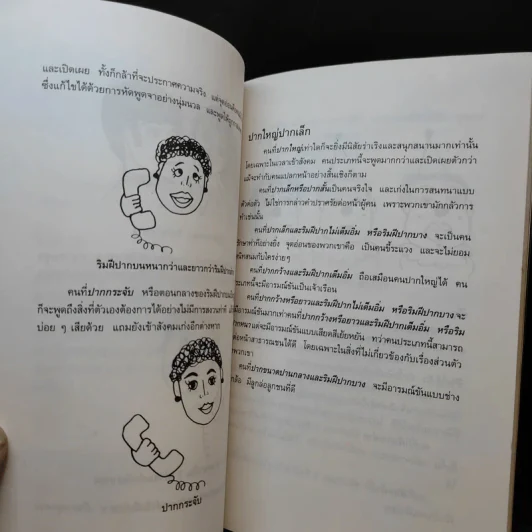 และเปิดเผย ทั้งก็กล้าที่จะประกาศความจริง
ซึ่งแก้ไขได้ด้วยการหัดพูดจาอย่างนุ่มนวล
ริมฝีปากบนหนากว่าและยาวกว่าริมฝีปากล่าง
คนที่ปากกระจับ หรือตอนกลางของริมฝีปากบน
ก็จะพูดถึงสิ่งที่ตัวเองต้องการได้อย่างไม่มีการสงวนท่าที
บ่อย ๆ เสียด้วย แถมยังเข้าสังคมเก่งอีกต่างหาก
ปากกระจับ
ปากใหญ่ปากเล็ก
คนที่ปากใหญ่เท่าใดก็จะยิ่งมีนิสัยร่าเริงและสนุกสนานมากเท่านั้น
โดยเฉพาะในเวลาเข้าสังคม คนประเภทนี้จะพูดมากกว่าและเปิดเผยตัวกว่า
แม้จะทำกับคนแปลกหน้าอย่างสิ้นเชิงก็ตาม
คนที่ปากเล็กหรือปากสั้นเป็นคนจริงใจ และเก่งในการสนทนาแบบ
ตัวต่อตัว ไม่ใช่การกล่าวคำปราศรัยต่อหน้าผู้คน เพราะพวกเขามักกลัวการ
ทำเช่นนั้น
คนที่ปากเล็กและริมฝีปากไม่เต็มอิ่ม หรือริมฝีปากบาง จะเป็นคน
รักษาท่าทีอย่างยิ่ง จุดอ่อนของพวกเขาคือ เป็นคนขี้ระแวง และจะไม่ยอม
สนิทสนมกับใครง่ายๆ
คนที่ปากกว้างและริมฝีปากเต็มอิ่ม ถือเสมือนคนปากใหญ่ได้ คน
ประเภทนี้จะมีอารมณ์ขันเป็นเจ้าเรือน
คนที่ปากกว้างหรือยาวและริมฝีปากไม่เต็มอิ่ม หรือริมฝีปากบาง จะ
มีอารมณ์ขันมากเท่าคนที่ปากกว้างหรือยาวและริมฝีปากเต็มอิ่ม หรือริม
ฝีปากหนาแต่จะมีอารมณ์ขันแบบเสียดสีเย้ยหยัน ทว่าคนประเภทนี้สามารถ
ต่อหน้าสาธารณชนได้ดี โดยเฉพาะในสิ่งที่ไม่เกี่ยวข้องกับเรื่องส่วนตัว
พวกเขา
คนที่ปากขนาดปานกลางและริมฝีปากบาง จะมีอารมณ์ขันแบบช่าง
ล้อ มีลูกล่อลูกชนที่ดี